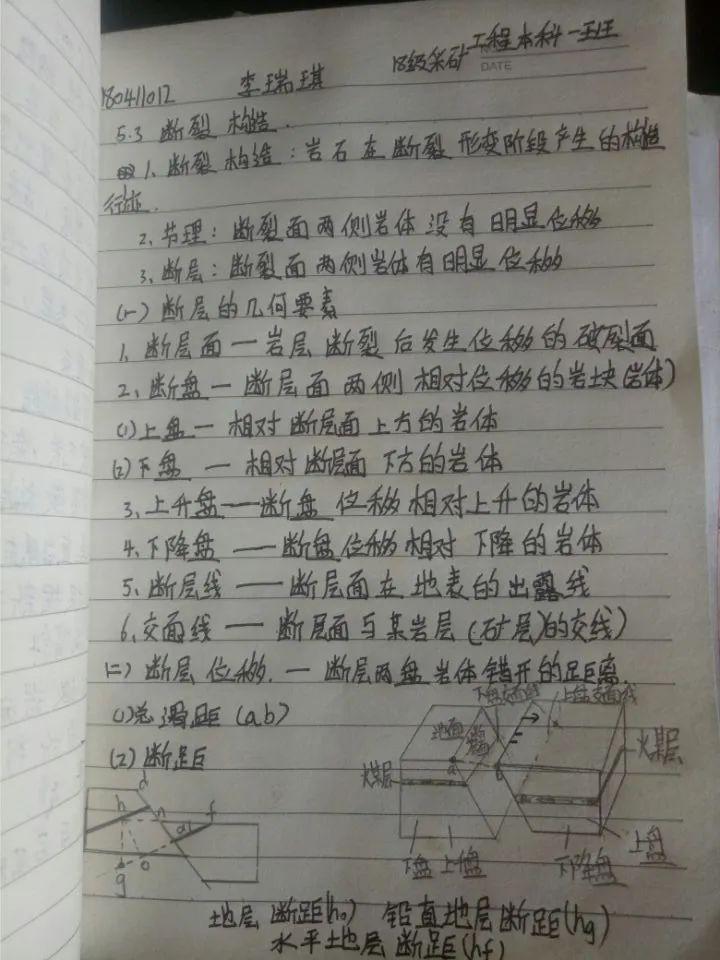 180411012 李瑞琪 18级采矿工程本科一班
DATE
5.3 断裂构造.
1、断裂构造：岩石在断裂形变阶段产生的构造
行迹.
2、节理：断裂面两侧岩体没有明显位移
3、断层：断裂面两侧岩体有明显位移
(一) 断层的几何要素
1、断层面一岩层断裂后发生位移的破裂面
2、断盘一断层面两侧相对位移的岩块(岩体)
(1)上盘一相对断层面上方的岩体
(2)下盘一相对断层面下方的岩体
3、上升盘——断盘位移相对上升的岩体
4、下降盘——断盘位移相对下降的岩体
5、断层线——断层面在地表的出露线
6、交面线——断层面与某岩层(矿层)的交线)
(二) 断层位移.一断层两盘岩体错开的距离.
下盘交面线 上盘交面线
(1)总滑距(ab)
地面 断层面
(2)断距
a b
煤层 煤层
d
h n f
α
g o
上盘
下盘 上升盘 下降盘
地层断距(ho) 铅直地层断距(hg)
水平地层断距(hf)